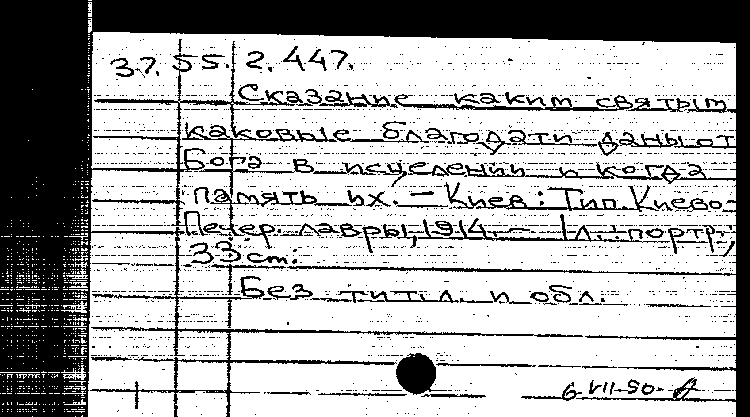 37.55.2.447.
Сказание каким святым
каковые благодати даны от
Бога в исцелении и когда
память их. — Киев: Тип. Киево-
Печер. лавры, 1914. — 1 л.: портр.;
33 ст.
Без тит. л. и обл.
6-VII-50.